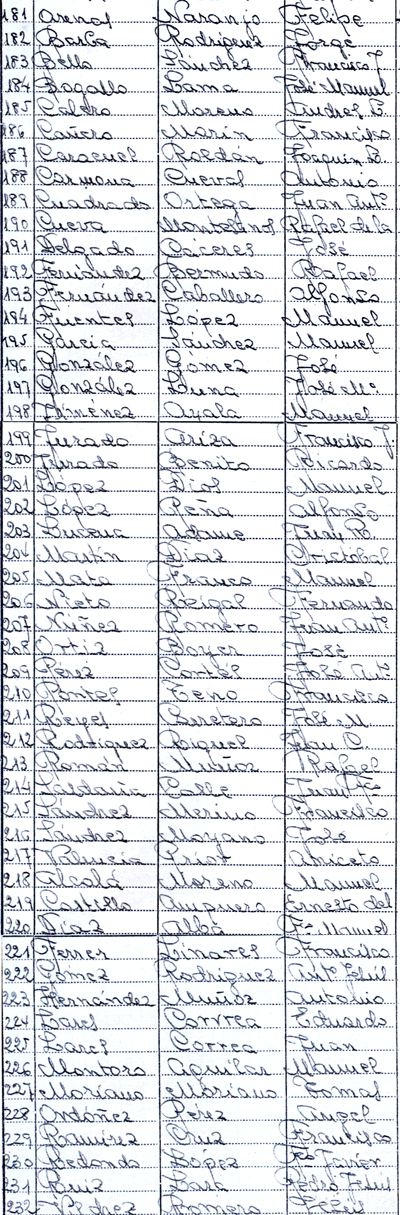 181 Arenal Naranjo Felipe
182 Barba Rodríguez Jorge
183 Bello Sánchez Francisco J.
184 Bogallo Lama José Manuel
185 Caldro Moreno Andrés B.
186 Cañero Marín Francisco
187 Caracuel Roldán Joaquín B.
188 Carmona Cuevas Antonio
189 Cuadrado Ortega Juan Antº
190 Cueva Rafael de la
191 Delgado Cáceres José
192 Fernández Bermudo Rafael
193 Fernández Caballero Alfonso
194 Fuentes López Manuel
195 García Sánchez Manuel
196 González Gómez José
197 González Luna José Mª
198 Jiménez Ayala Manuel
199 Jurado Ariza Francisco J.
200 Jurado Benito Ricardo
201 López Dios Manuel
202 López Peña Alfonso
203 Lucena Adame Juan R.
204 Martín Díaz Cristobal
205 Mata Franco Manuel
206 Nieto Fernando
207 Núñez Romero Juan Antº
208 Ortiz Boyer José
209 Pérez Cortés José Antº
210 Pontes Francisco
211 Reyes Carretero José M.
212 Rodríguez Juan C.
213 Román Muñoz Rafael
214 Saldaña Calle Juan Fº
215 Sánchez Merino Francisco
216 Sánchez Moyano José
217 Valencia Priot Aniceto
218 Alcalá Moreno Manuel
219 Castillo Ampuero Ernesto del
220 Díaz Alba Fº Manuel
221 Ferrer Linares Francisco
222 Gómez Rodríguez Antº
223 Hernández Muñoz Antonio
224 Lares Correa Eduardo
225 Lares Correa Juan
226 Montoro Aguilar Manuel
227 Moriano Moriano Tomás
228 Ordóñez Pérez Angel
229 Ramírez Cruz Francisco
230 Redondo López Fº Javier
231 Ruiz Lara Pedro
232 Romero Jesús